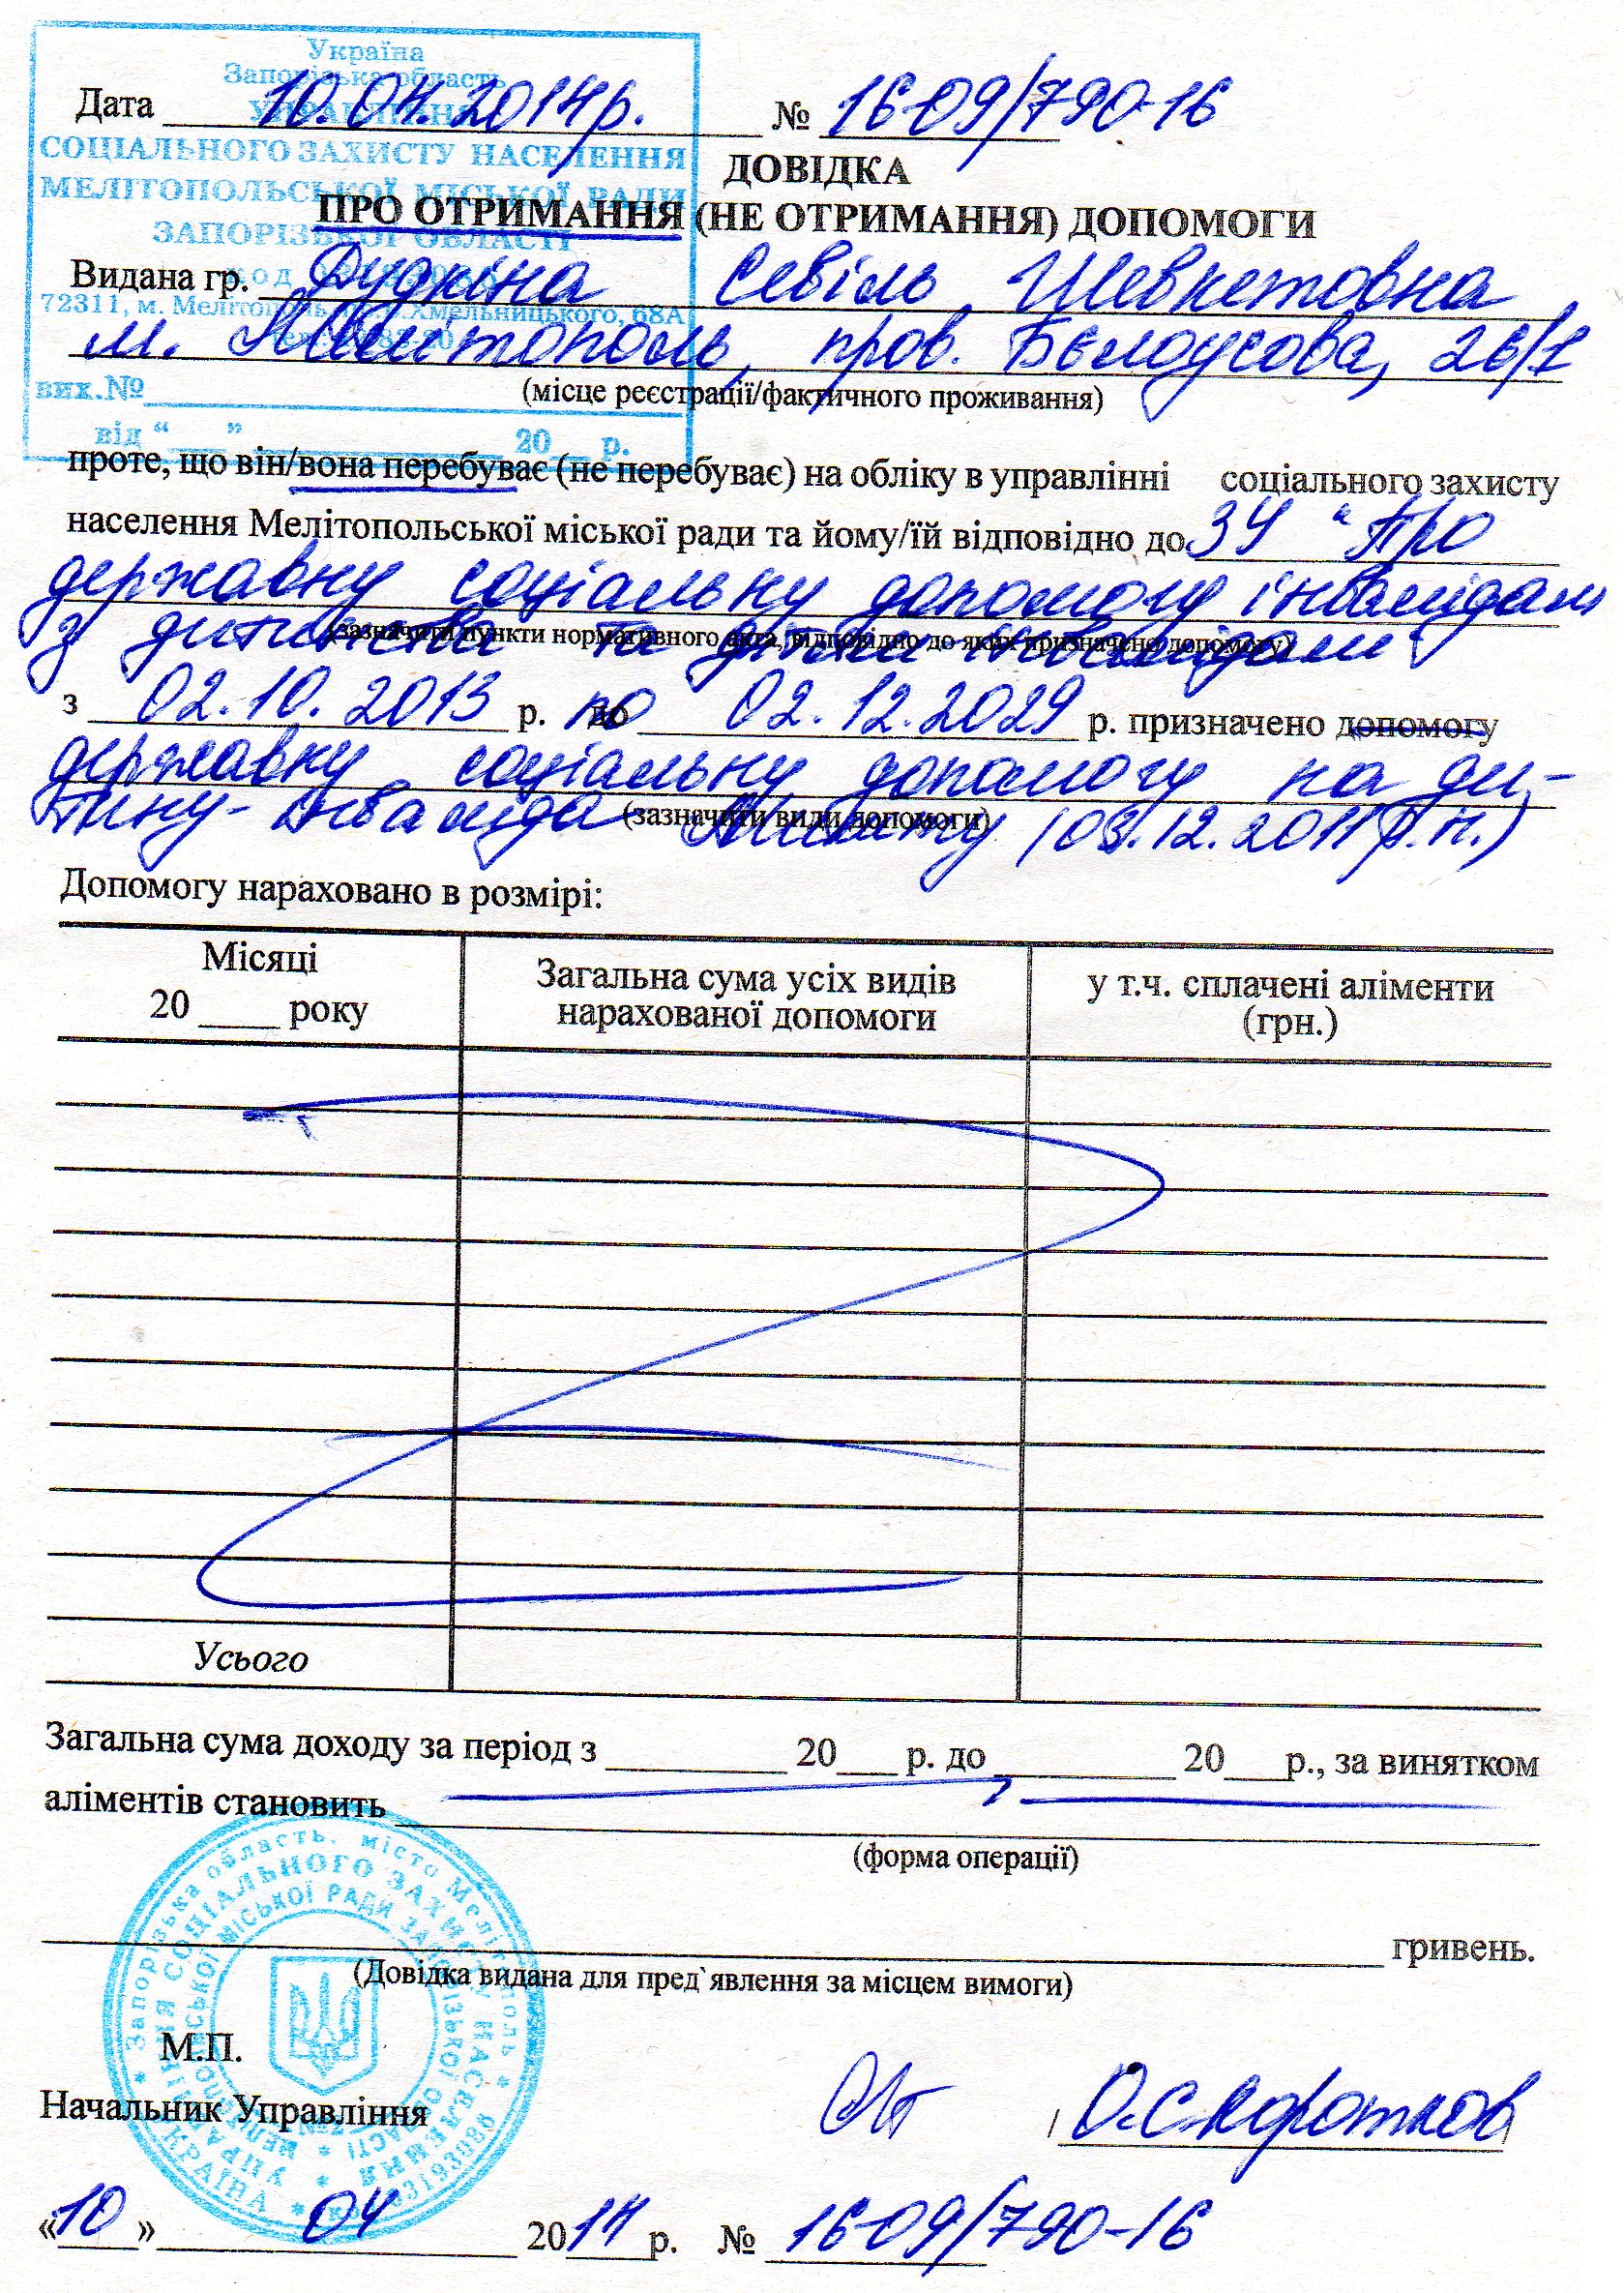 Україна
Запорізька область
УПРАВЛІННЯ
СОЦІАЛЬНОГО ЗАХИСТУ НАСЕЛЕННЯ
МЕЛІТОПОЛЬСЬКОЇ МІСЬКОЇ РАДИ
ЗАПОРІЗЬКОЇ ОБЛАСТІ
код
72311, м. Мелітополь, Хмельницького, 68А
вих.№
від “ ” 20 р.
Дата 10.04.2014р. № 16-09/790-16
ДОВІДКА
ПРО ОТРИМАННЯ (НЕ ОТРИМАННЯ) ДОПОМОГИ
Видана гр. Дудкіна Севіль Шевкетовна
м. Мелітополь, пров. Бєлоусова, 26/1
(місце реєстрації/фактичного проживання)
проте, що він/вона перебуває (не перебуває) на обліку в управлінні соціального захисту
населення Мелітопольської міської ради та йому/їй відповідно до ЗУ "Про
державну соціальну допомогу інвалідам
(зазначити пункти нормативного акта, відповідно до яких призначено допомогу)
з дитинства та дітям інвалідам"
з 02.10.2013 р. по до 02.12.2029 р. призначено допомогу
державну соціальну допомогу на ди-
(зазначити види допомоги)
тину-інваліда (03.12.2011р.н.)
Допомогу нараховано в розмірі:
Місяці
20 ____ року
Загальна сума усіх видів
нарахованої допомоги
у т.ч. сплачені аліменти
(грн.)
Усього
Загальна сума доходу за період з _________ 20___ р. до _________ 20___р., за винятком
аліментів становить
(форма операції)
гривень.
(Довідка видана для пред`явлення за місцем вимоги)
М.П.
Начальник Управління / О.С. Коротков /
«10» 04 2014 р. № 16-09/790-16
Запорізька область, місто Мелітополь
УПРАВЛІННЯ СОЦІАЛЬНОГО ЗАХИСТУ НАСЕЛЕННЯ
МЕЛІТОПОЛЬСЬКОЇ МІСЬКОЇ РАДИ ЗАПОРІЗЬКОЇ ОБЛАСТІ
УКРАЇНА
№2